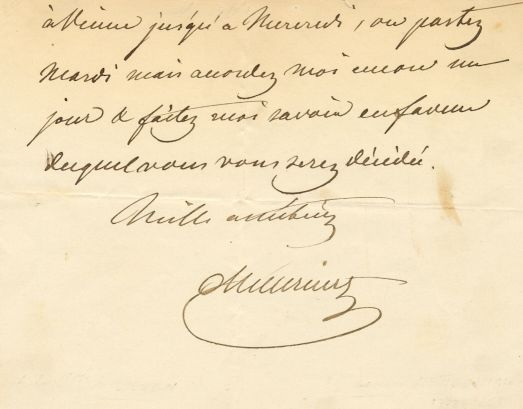 à Vienne jusqu'a Mercredi, ou partez
Mardi mais accordez moi encore un
jour & faites moi savoir en faveur
duquel vous vous serez décidé.
Mille